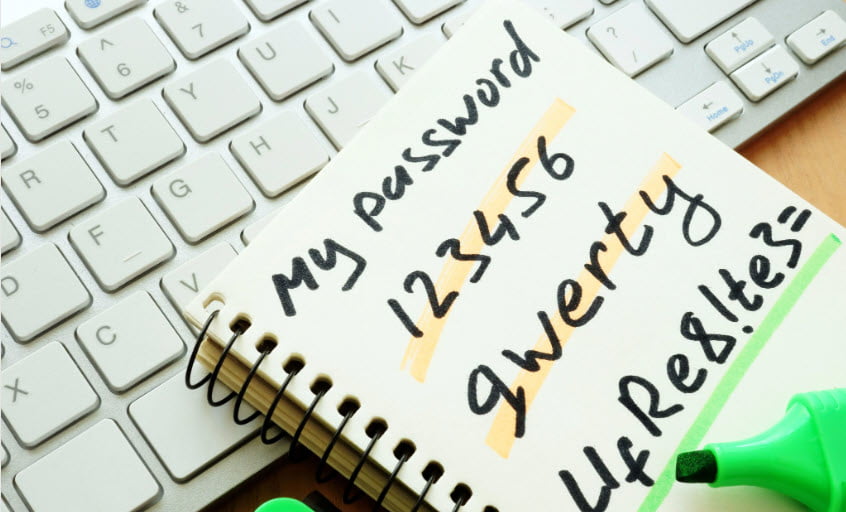 My password
123456
qwerty
UfRe8!te3=
F5
^
6
&
7
%
5
R
T
Y
U
I
D
F
G
H
J
K
X
C
V
?
/
PgUp
Home
PgDn
End